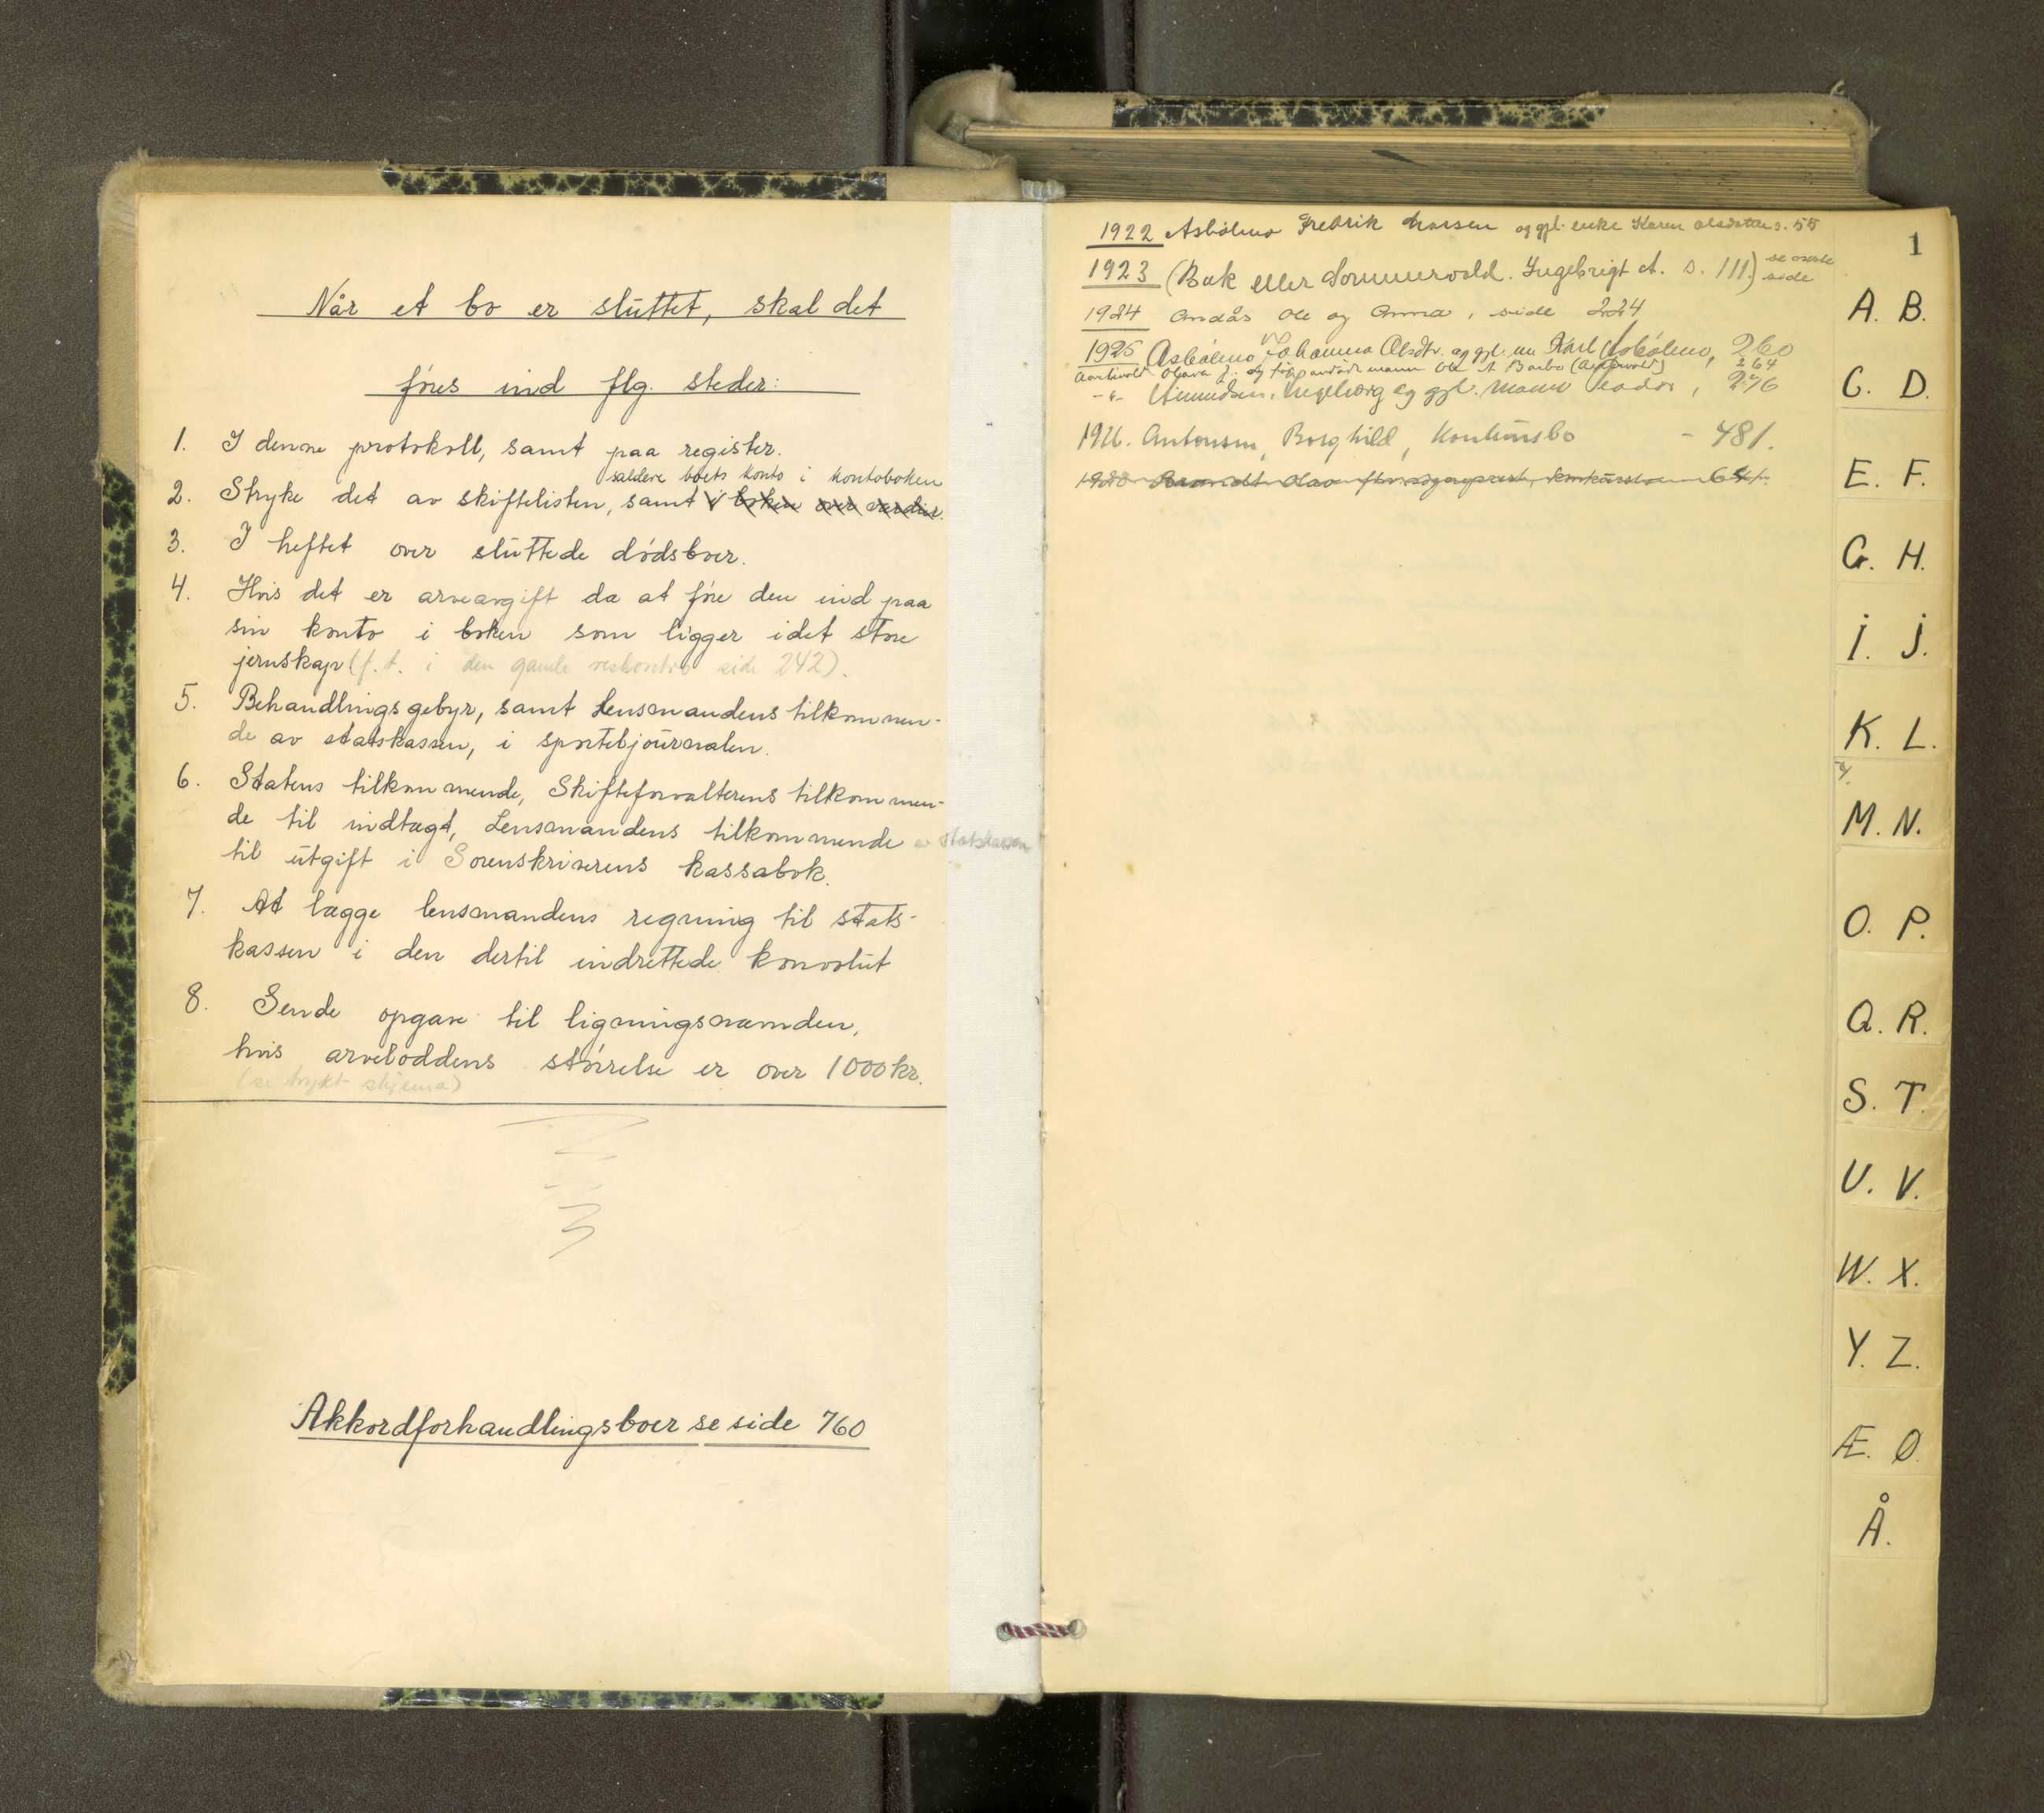 Når et bo er sluttet, skal det
føres ind flg. steder:
1. I denne protokoll, samt paa register.
saldere boets konto i kontoboken
2. Stryke det av skiftelisten, samt i boken over verdier.
3. I heftet over sluttede dødsboer.
4. Hvis det er arveavgift da at føre den ind paa
sin konto i boken som ligger i det store
jernskap (f.t. i den gamle reskontro side 242).
5. Behandlingsgebyr, samt Lensmandens tilkommen-
de av statskassen, i sporteljournalen.
6. Statens tilkommende, Skifteforvalterens tilkommen-
de til indtægt, Lensmandens tilkommende av statskassen
til utgift i Sorenskriverens kassabok.
7. At lægge lensmandens regning til stats-
kassen i den dertil indrettede konvolut
8. Sende opgave til ligningsnævnden,
hvis arveloddens størrelse er over 1000 kr.
(se trykt skjema)
Akkordforhandlingsboer se side 760
1922 Asbølmo Fredrik Larsen og gjl. enke Karen Olsdatter s. 55
1
1923 (Bæk eller Sommervold. Ingebrigt A. s. 111) se neste side
1924 Andås Ole og Anna, side 224
1925 Asbølmo Johanna Olsdtr. og gjl. m. Karl Asbølmo, 260
Olava J. og før avdøde mann Ole A. Barbo 264
-"- Amundsen, Ingeborg og gjl. mann, 276
1926. Antonsen, Borghild, Konkursbo - 481.
Brandt Olav, konkursbo
A. B.
C. D.
E. F.
G. H.
I. J.
K. L.
M. N.
O. P.
Q. R.
S. T.
U. V.
W. X.
Y. Z.
Æ. Ø
Å.